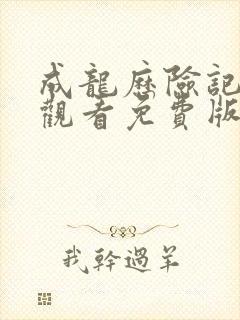 成龍歷險記
觀看免費版
我幹過羊